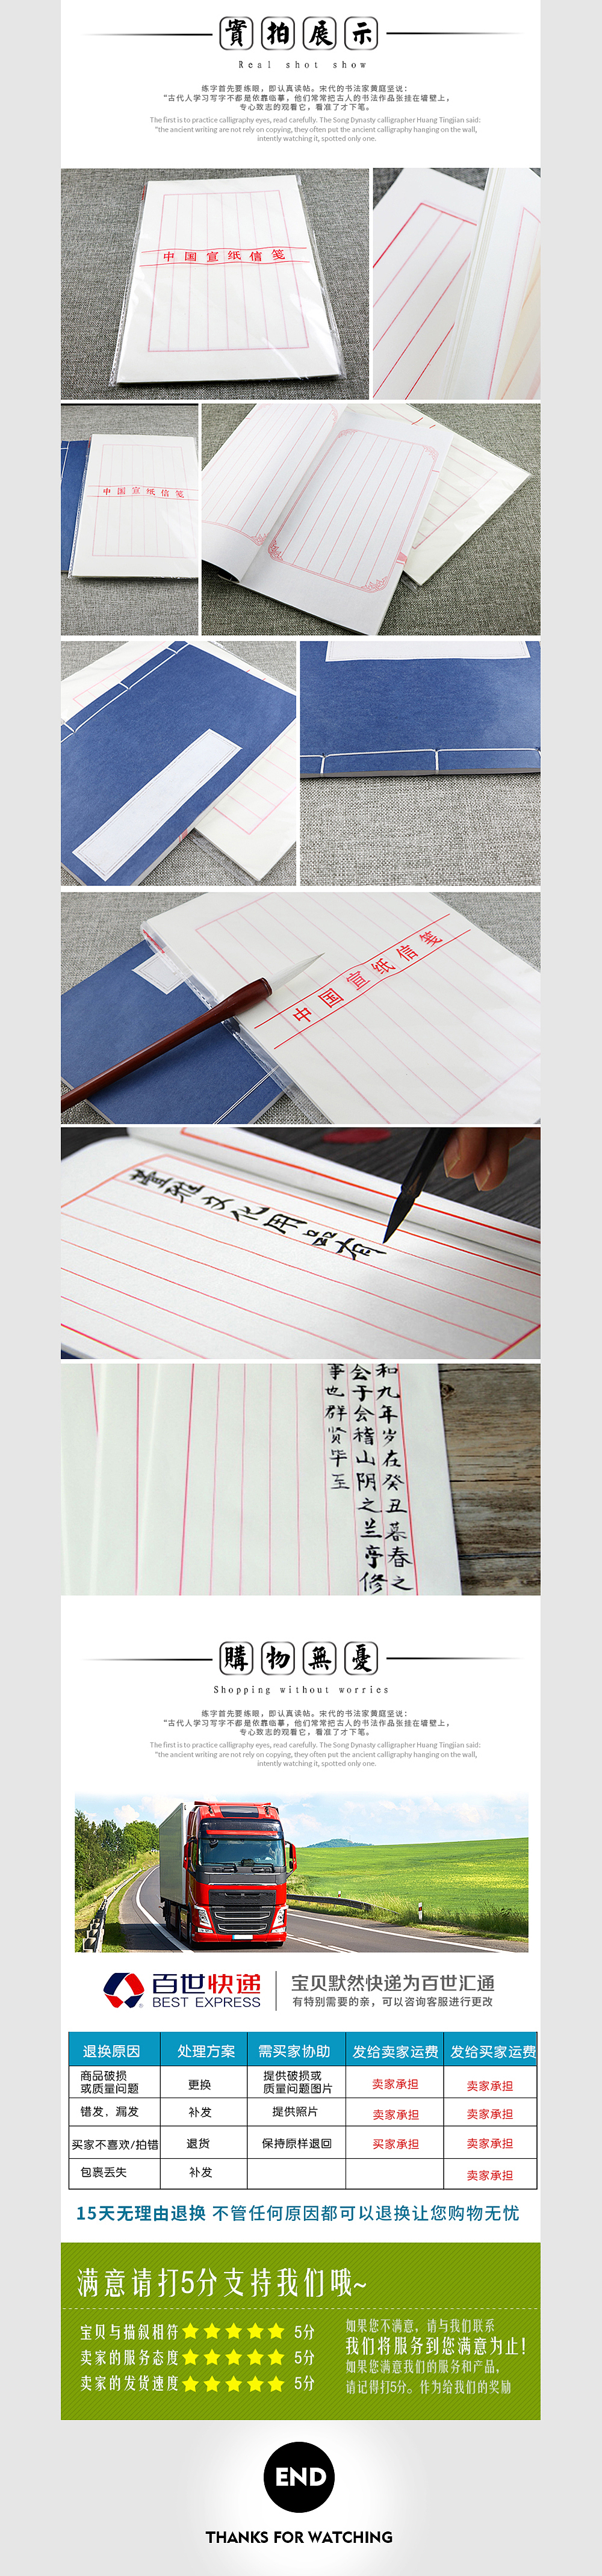 實拍展示
Real shot show
练字首先要练眼，即认真读帖。宋代的书法家黄庭坚说：
“古代人学习写字不都是依靠临摹，他们常常把古人的书法作品张挂在墙壁上，
专心致志的观看它，看准了才下笔。
The first is to practice calligraphy eyes, read carefully. The Song Dynasty calligrapher Huang Tingjian said:
"the ancient writing are not rely on copying, they often put the ancient calligraphy hanging on the wall,
intently watching it, spotted only one.
中国宣纸信笺
中国宣纸信笺
中国宣纸信笺
雅文化用品有
和九年岁在癸丑暮春之
会于会稽山阴之兰亭修
事也群贤毕至
購物無憂
Shopping without worries
练字首先要练眼，即认真读帖。宋代的书法家黄庭坚说：
“古代人学习写字不都是依靠临摹，他们常常把古人的书法作品张挂在墙壁上，
专心致志的观看它，看准了才下笔。
The first is to practice calligraphy eyes, read carefully. The Song Dynasty calligrapher Huang Tingjian said:
"the ancient writing are not rely on copying, they often put the ancient calligraphy hanging on the wall,
intently watching it, spotted only one.
百世快递
BEST EXPRESS
宝贝默然快递为百世汇通
有特别需要的亲，可以咨询客服进行更改
退换原因 处理方案 需买家协助 发给卖家运费 发给买家运费
商品破损
或质量问题 更换 提供破损或
质量问题图片 卖家承担 卖家承担
错发，漏发 补发 提供照片 卖家承担 卖家承担
买家不喜欢/拍错 退货 保持原样退回 买家承担 卖家承担
包裹丢失 补发 卖家承担
15天无理由退换 不管任何原因都可以退换让您购物无忧
满意请打5分支持我们哦~
宝贝与描叙相符 ★★★★★ 5分
卖家的服务态度 ★★★★★ 5分
卖家的发货速度 ★★★★★ 5分
如果您不满意，请与我们联系
我们将服务到您满意为止！
如果您满意我们的服务和产品，
请记得打5分。作为给我们的奖励
END
THANKS FOR WATCHING